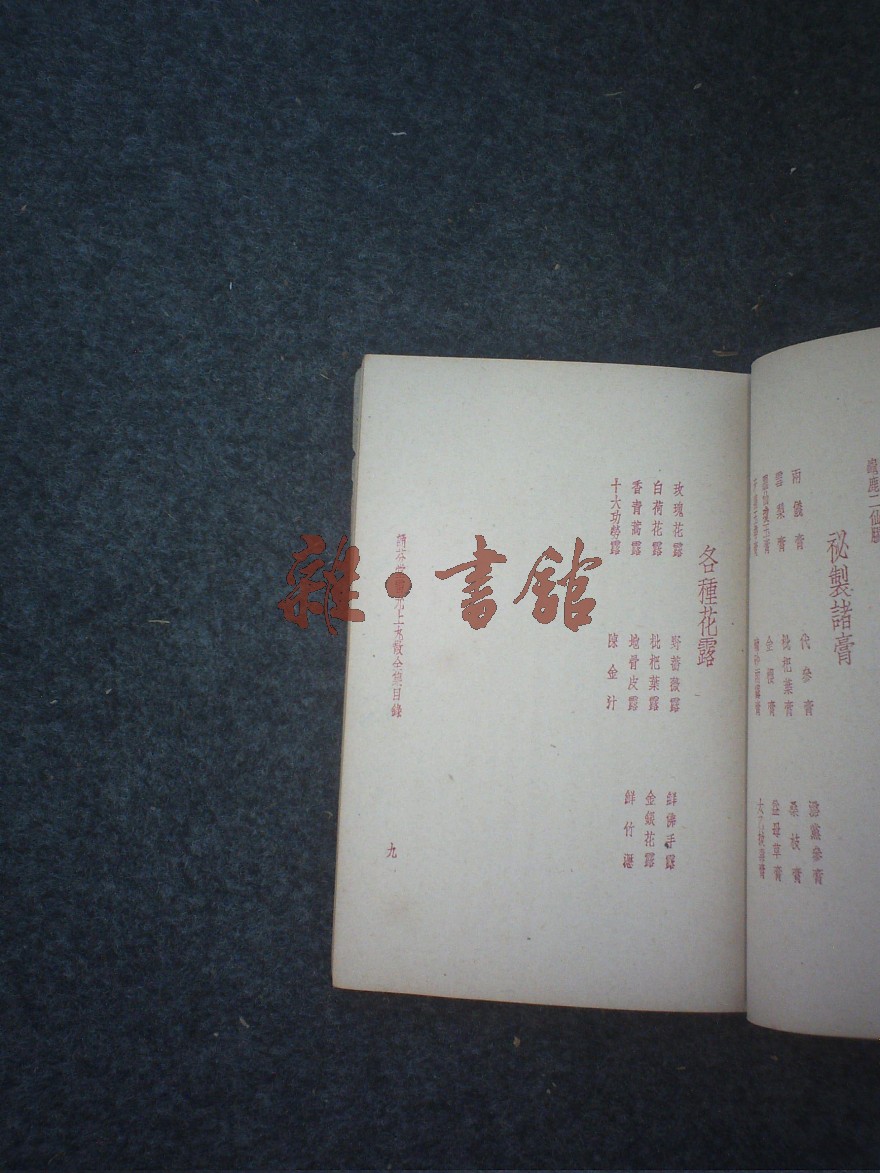 龜鹿二仙膠
祕製諸膏
兩儀膏
代參膏
潞黨參膏
雪梨膏
枇杷葉膏
桑枝膏
瓊玉膏
金櫻膏
益母草膏
膏
膏
大力膏
各種花露
玫瑰花露
野薔薇露
鮮佛手露
白荷花露
枇杷葉露
金銀花露
香青蒿露
地骨皮露
鮮竹瀝
十大功勞露
陳金汁
丸上全集目錄
九
雜·書館